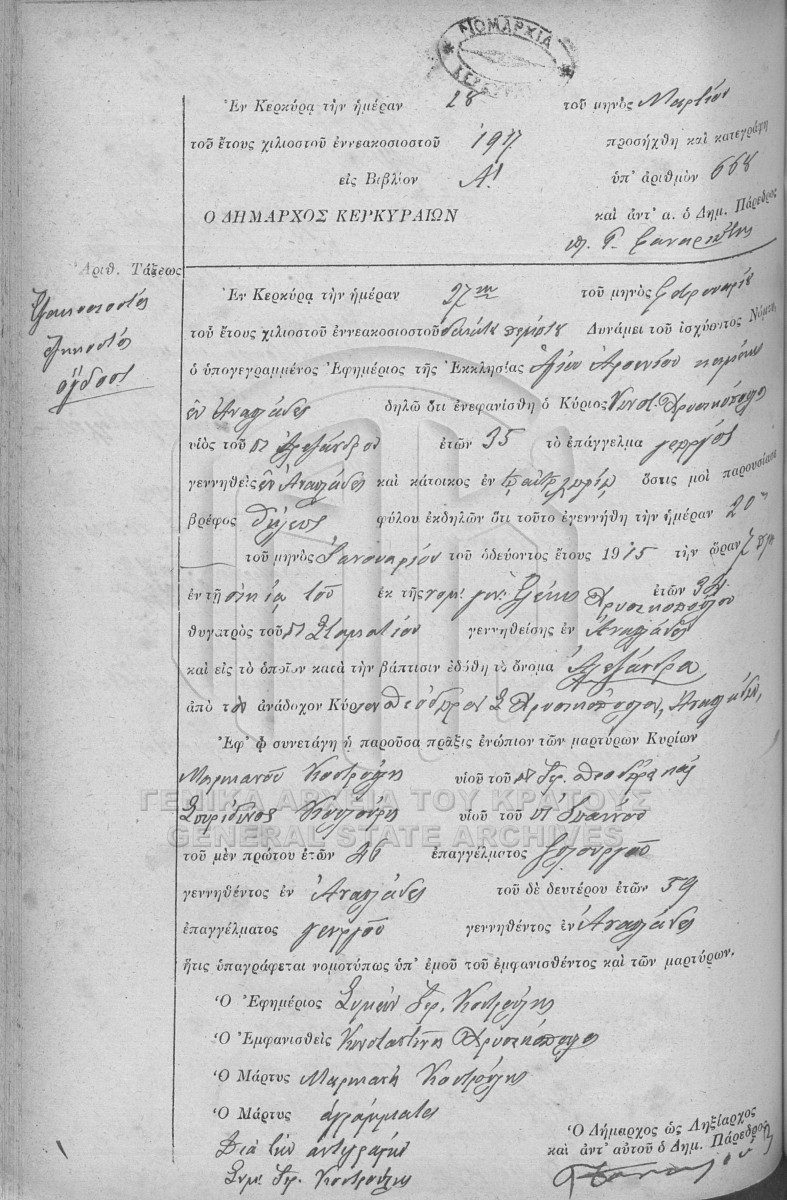 ΝΟΜΑΡΧΙΑ
ΚΕΡΚΥΡΑΣ
Ἐν Κερκύρᾳ τὴν ἡμέραν 28 τοῦ μηνὸς Μαρτίου
τοῦ ἔτους χιλιοστοῦ ἐννεακοσιοστοῦ 1917 προσήχθη καὶ κατεγράφη
εἰς Βιβλίον Α! ὑπ' ἀριθμὸν 668
Ο ΔΗΜΑΡΧΟΣ ΚΕΡΚΥΡΑΙΩΝ καὶ ἀντ' α. ὁ Δημ. Πάρεδρος
Ἀριθ. Τάξεως
Ἑξακοσιοστός
ἑξηκοστός
ὄγδοος
Ἐν Κερκύρᾳ τὴν ἡμέραν 27ην τοῦ μηνὸς Φεβρουαρίου
τοῦ ἔτους χιλιοστοῦ ἐννεακοσιοστοῦ δεκάτου πέμπτου Δυνάμει τοῦ ἰσχύοντος Νόμου,
ὁ ὑπογεγραμμένος Ἐφημέριος τῆς Ἐκκλησίας Ἁγίου Ἀρσενίου
ἐν Ἀναπλάδες δηλῶ ὅτι ἐνεφανίσθη ὁ Κύριος Κωνστ. Χρυσικόπουλος
υἱὸς τοῦ Ἀλεξάνδρου ἐτῶν 35 τὸ ἐπάγγελμα γεωργός
γεννηθεὶς ἐν Ἀναπλάδες καὶ κάτοικος ἐν τῷ αὐτῷ χωρίῳ ὅστις μοὶ παρουσίασε
βρέφος θήλεος φύλου ἐκδηλῶν ὅτι τοῦτο ἐγεννήθη τὴν ἡμέραν 20ην
τοῦ μηνὸς Ἰανουαρίου τοῦ ὁδεύοντος ἔτους 1915 τὴν ὥραν 7 πμ
ἐν τῇ οἰκίᾳ του ἐκ τῆς νομ. γυν. Ἑλένης Χρυσικοπούλου ἐτῶν 34
θυγατρὸς τοῦ Σταματίου γεννηθείσης ἐν Ἀναπλάδες
καὶ εἰς τὸ ὁποῖον κατὰ τὴν βάπτισιν ἐδόθη τὸ ὄνομα Ἀλεξάνδρα
ἀπὸ τὸν ἀνάδοχον Κύριον Θεόδωρον Σ Χρυσικόπουλον, Ἀναπλάδες,
Ἐφ' ᾧ συνετάγη ἡ παροῦσα πρᾶξις ἐνώπιον τῶν μαρτύρων Κυρίων
Μαρκιανοῦ Κοντρούλη υἱοῦ τοῦ
Σπυρίδωνος Κουλούρη υἱοῦ τοῦ Ἰωάννου
ΓΕΝΙΚΑ ΑΡΧΕΙΑ ΤΟΥ ΚΡΑΤΟΥΣ
GENERAL STATE ARCHIVES
τοῦ μὲν πρώτου ἐτῶν 46 ἐπαγγέλματος ξυλουργοῦ
γεννηθέντος ἐν Ἀναπλάδες τοῦ δὲ δευτέρου ἐτῶν 59
ἐπαγγέλματος γεωργοῦ γεννηθέντος ἐν Ἀναπλάδες
ἥτις ὑπαγράφεται νομοτύπως ὑπ' ἐμοῦ τοῦ ἐμφανισθέντος καὶ τῶν μαρτύρων.
Ὁ Ἐφημέριος Συμεὼν Ἱερ. Κοντρούλης
Ὁ Ἐμφανισθεὶς Κωνσταντῖνος Χρυσικόπουλος
Ὁ Μάρτυς Μαρκιανὸς Κοντρούλης
Ὁ Μάρτυς ἀγράμματος
Διὰ τὴν ἀντιγραφὴν
Συμ. Ἱερ. Κοντρούλης
Ὁ Δήμαρχος ὡς Ληξίαρχος
καὶ ἀντ' αὐτοῦ ὁ Δημ. Πάρεδρος